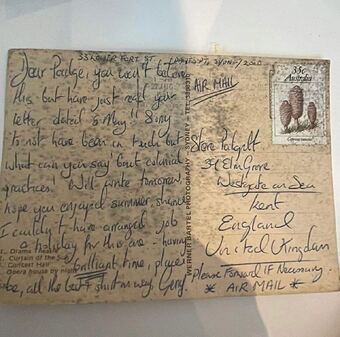 33 LOWER FORT ST SYDNEY 2000
Dear Podge, you won't believe
this but have just read your
letter dated 8 May!! Sorry
to not have been in touch but
what can you say 'bout colonial
practices. Will write tomorrow,
hope you enjoyed summer, shame
I couldn't have arranged job
on holiday for this are - having
brilliant time, player
be, all the best + shit on way. Gerry.
1. Drama Theatre
2. Curtain of the
3. Concert Hall
Opera house by night
WERNER BARTEL PHOTOGRAPHY - SYDNEY - TEL.
AIR MAIL
35c
Australia
Steve
39 Elm Grove
Westgate on Sea
Kent
England
United Kingdom
Please Forward If Necessary.
* AIR MAIL *